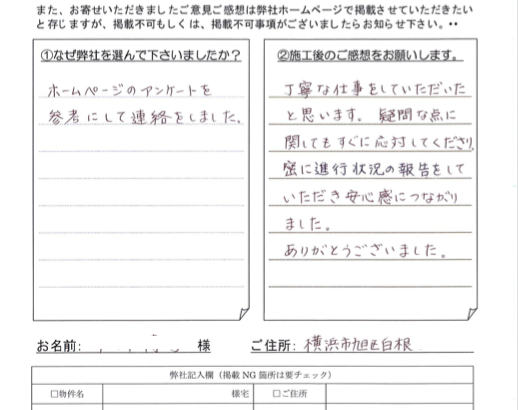 また、お寄せいただきましたご意見ご感想は弊社ホームページで掲載させていただきたい
と存じますが、掲載不可もしくは、掲載不可事項がございましたらお知らせ下さい。
①なぜ弊社を選んで下さいましたか？
ホームページのアンケートを
参考にして連絡をしました。
②施工後のご感想をお願いします。
丁寧な仕事をしていただいた
と思います。疑問な点に
関してもすぐに応対してくださり
密に進行状況の報告をして
いただき安心感につながり
ました。
ありがとうございました。
お名前: 様 ご住所: 横浜市旭区白根
弊社記入欄（掲載 NG 箇所は要チェック）
□物件名 様宅 □ご住所